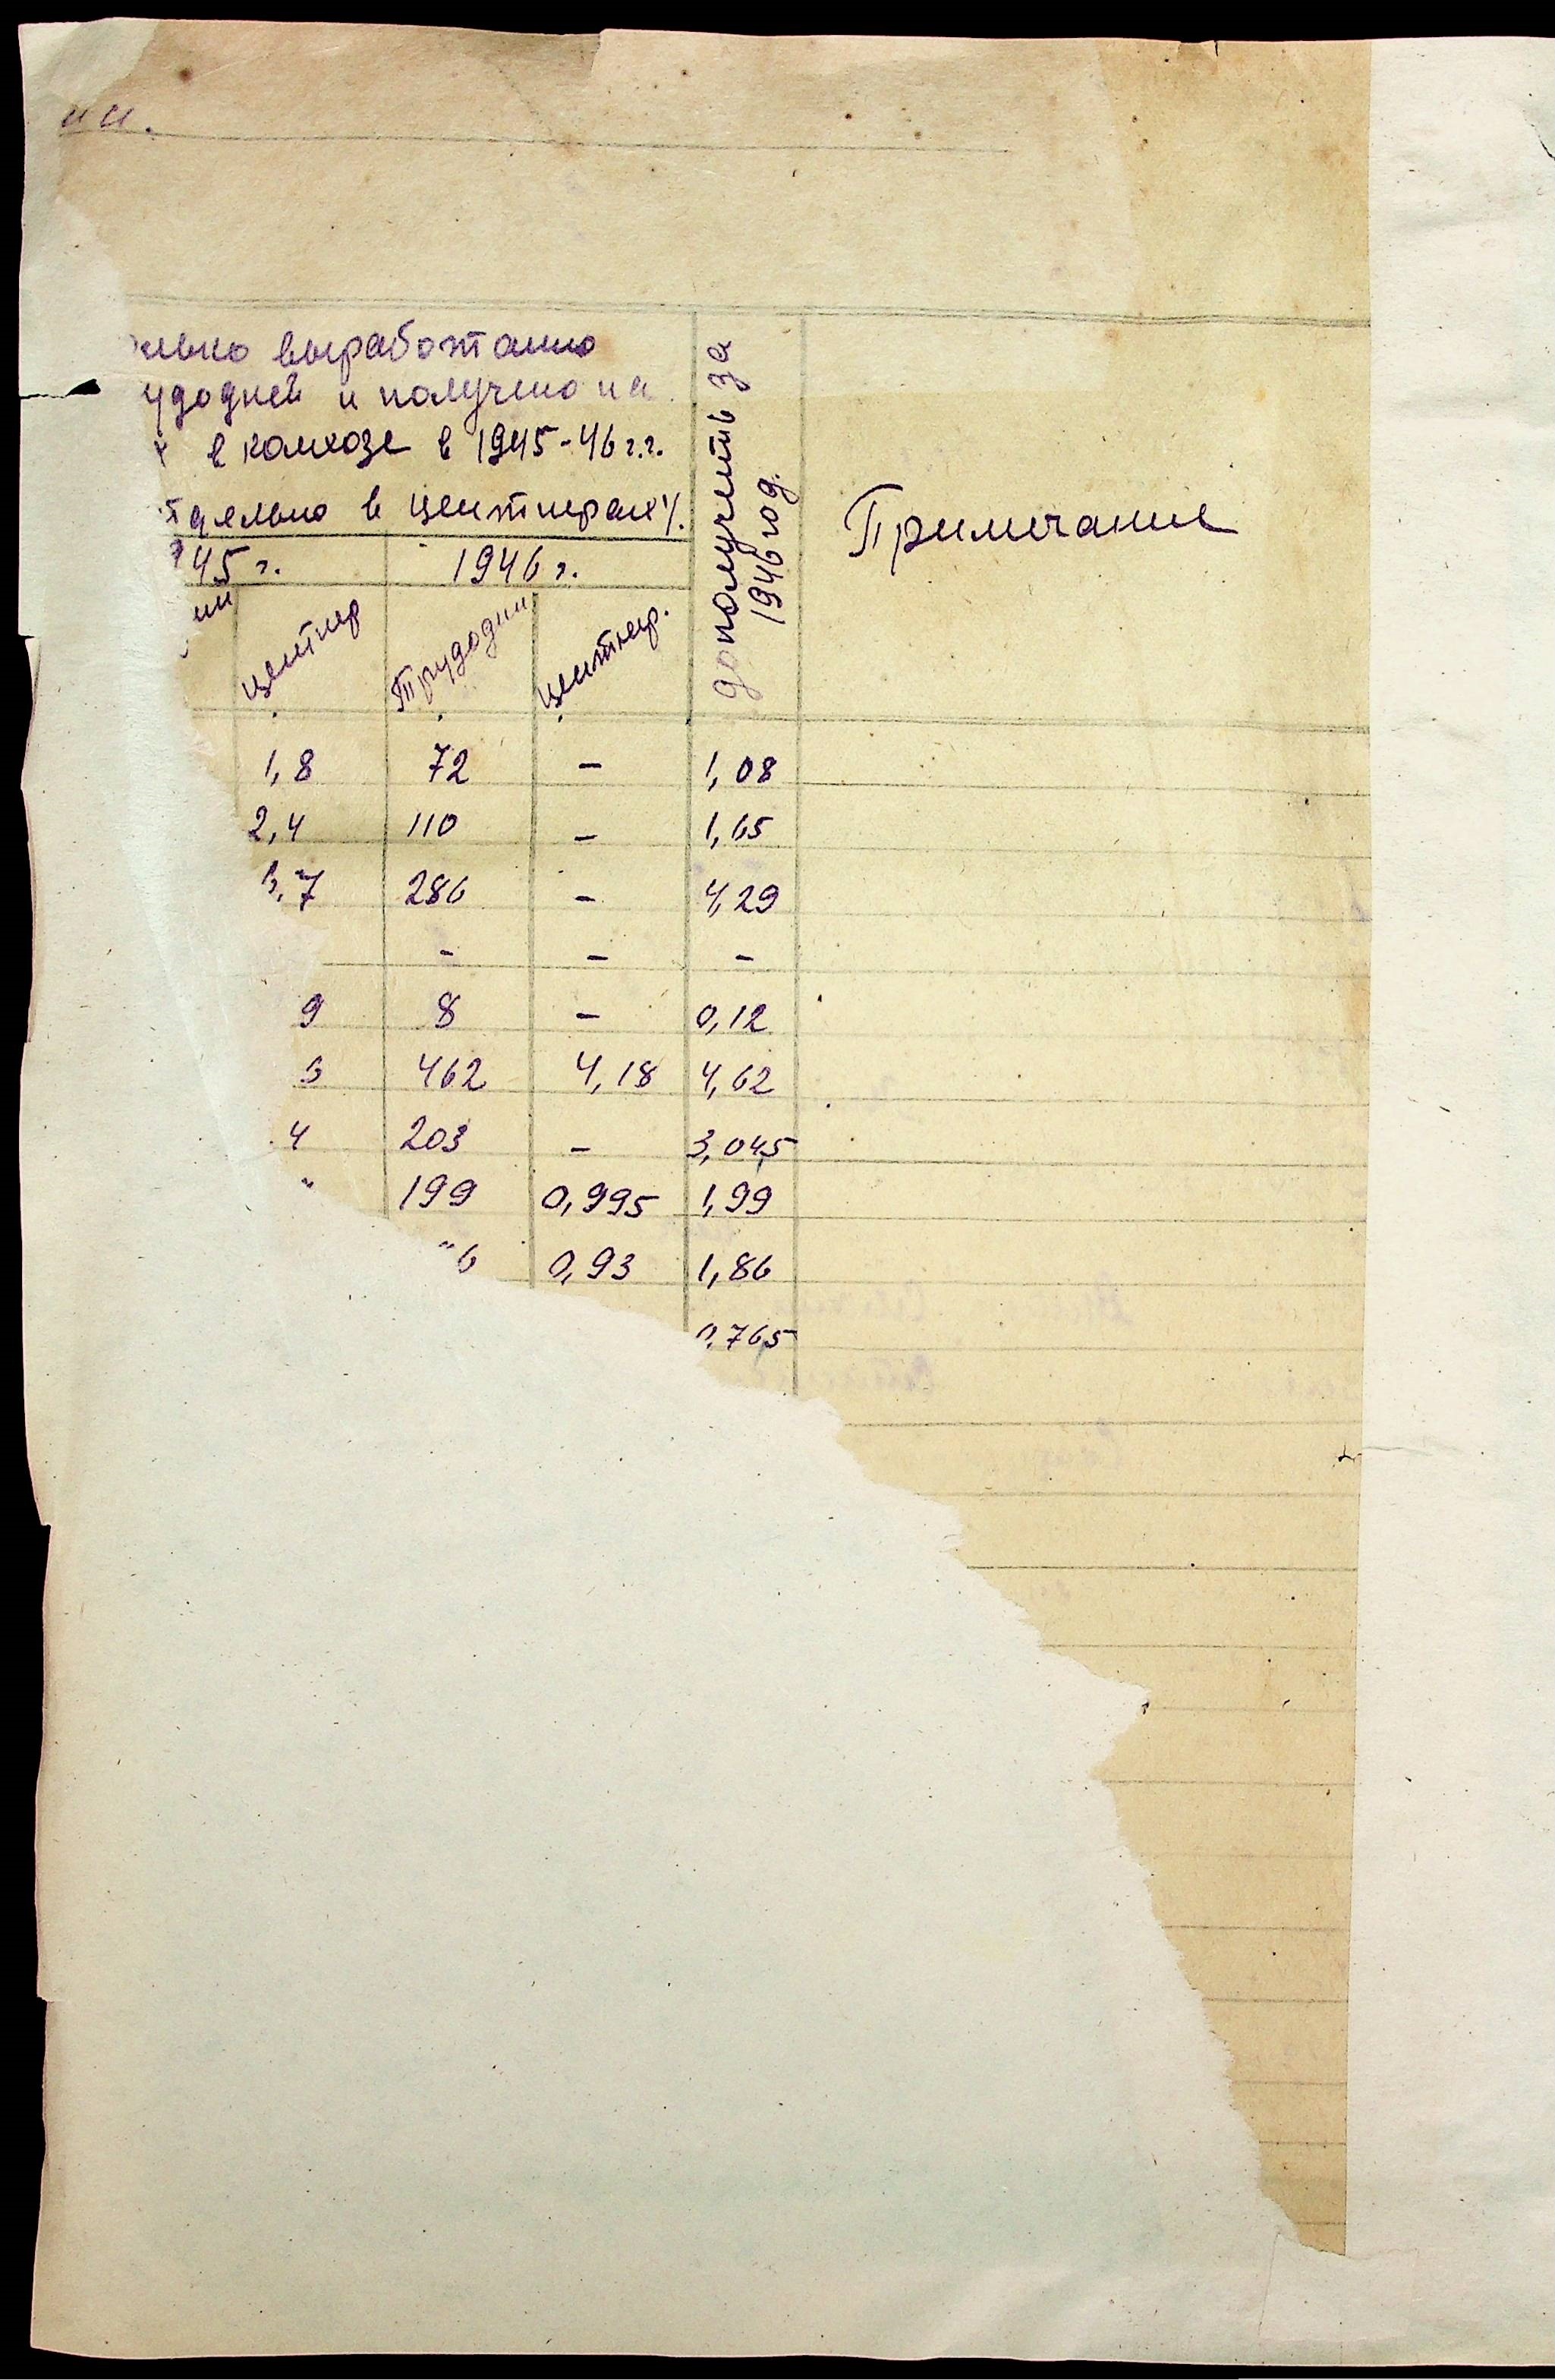 ии.
олько выработанно
удодней и получено на
х в колхозе в 1945-46 г.г.
тдельно в центнерах/.
дополучить за
1946 год.
Примечание
945 г. 1946 г.
ни центнер Трудодни центнер.
1,8 72 - 1,08
2,4 110 - 1,65
3,7 286 - 4,29
- - -
9 8 - 0,12
6 462 4,18 4,62
4 203 - 3,045
" 199 0,995 1,99
6 0,93 1,86
0,765